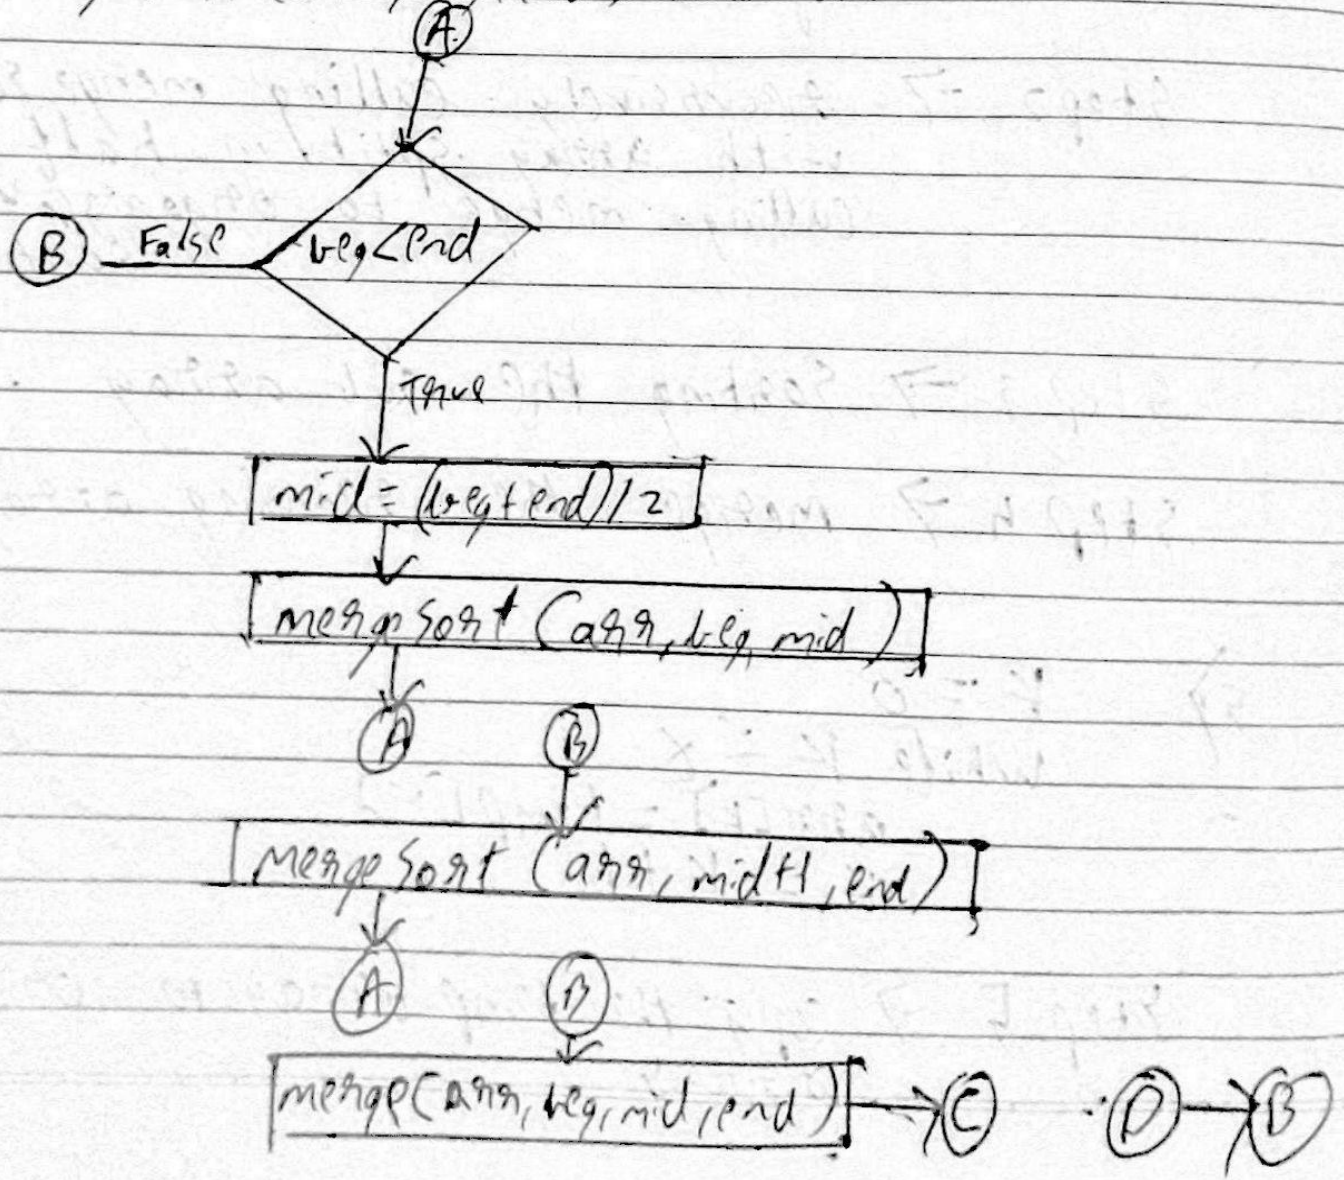 A
B False beg<end
True
mid=(beg+end)/2
mergeSort (arr, beg, mid)
A B
mergeSort (arr, mid+1, end)
A B
merge(arr, beg, mid, end) C D B